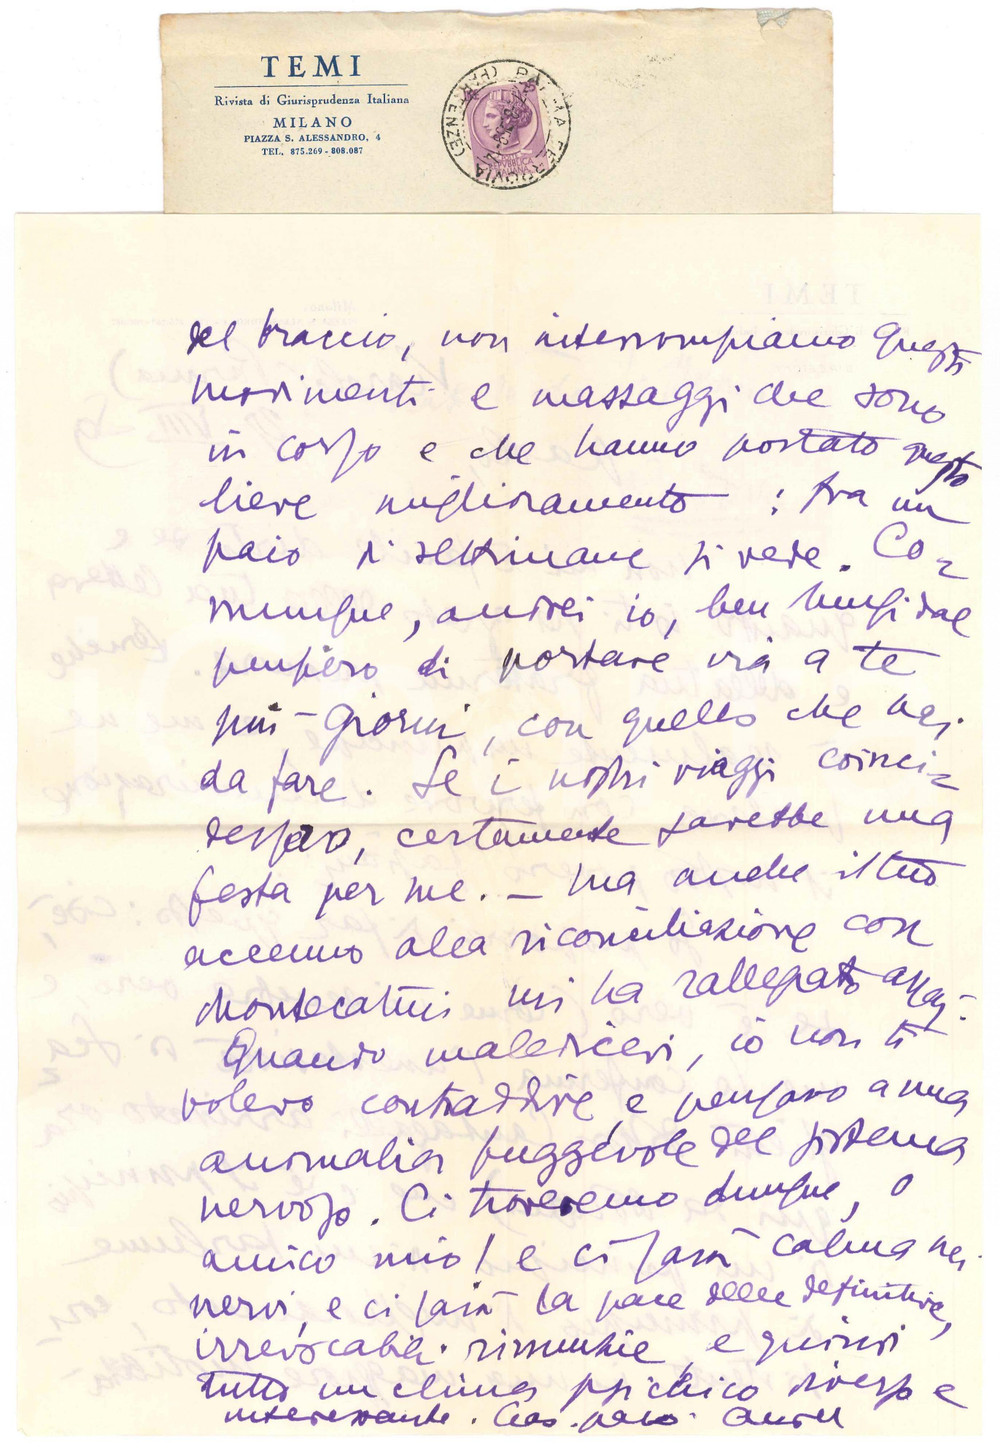 TEMI
Rivista di Giurisprudenza Italiana
MILANO
PIAZZA S. ALESSANDRO, 4
TEL. 875.269 - 808.087
FERROVIA
REPUBBLICA
ITALIANA
del braccio, non interrompiamo questi
movimenti e massaggi che sono
in corso e che hanno portato questo
lieve miglioramento: fra un
paio di settimane si vede. Co=
munque, andrei io, ben lungi dal
pensiero di portare via a te
più giorni, con quello che hai
da fare. Se i nostri viaggi coinci=
dessero, certamente sarebbe una
festa per me. - Ma anche il tuo
accenno alla riconciliazione con
Montecatini mi ha rallegrato assai.
Quando maledicevi, io non ti
volevo contraddire, e pensavo a una
anomalia fuggevole del sistema
nervoso. Ci troveremo dunque, o
amico mio! e ci sarà calma nei
nervi, e ci sarà la pace delle definitive,
irrevocabili rinunzie, e quindi
tutto un clima psichico diverso e
interessante.